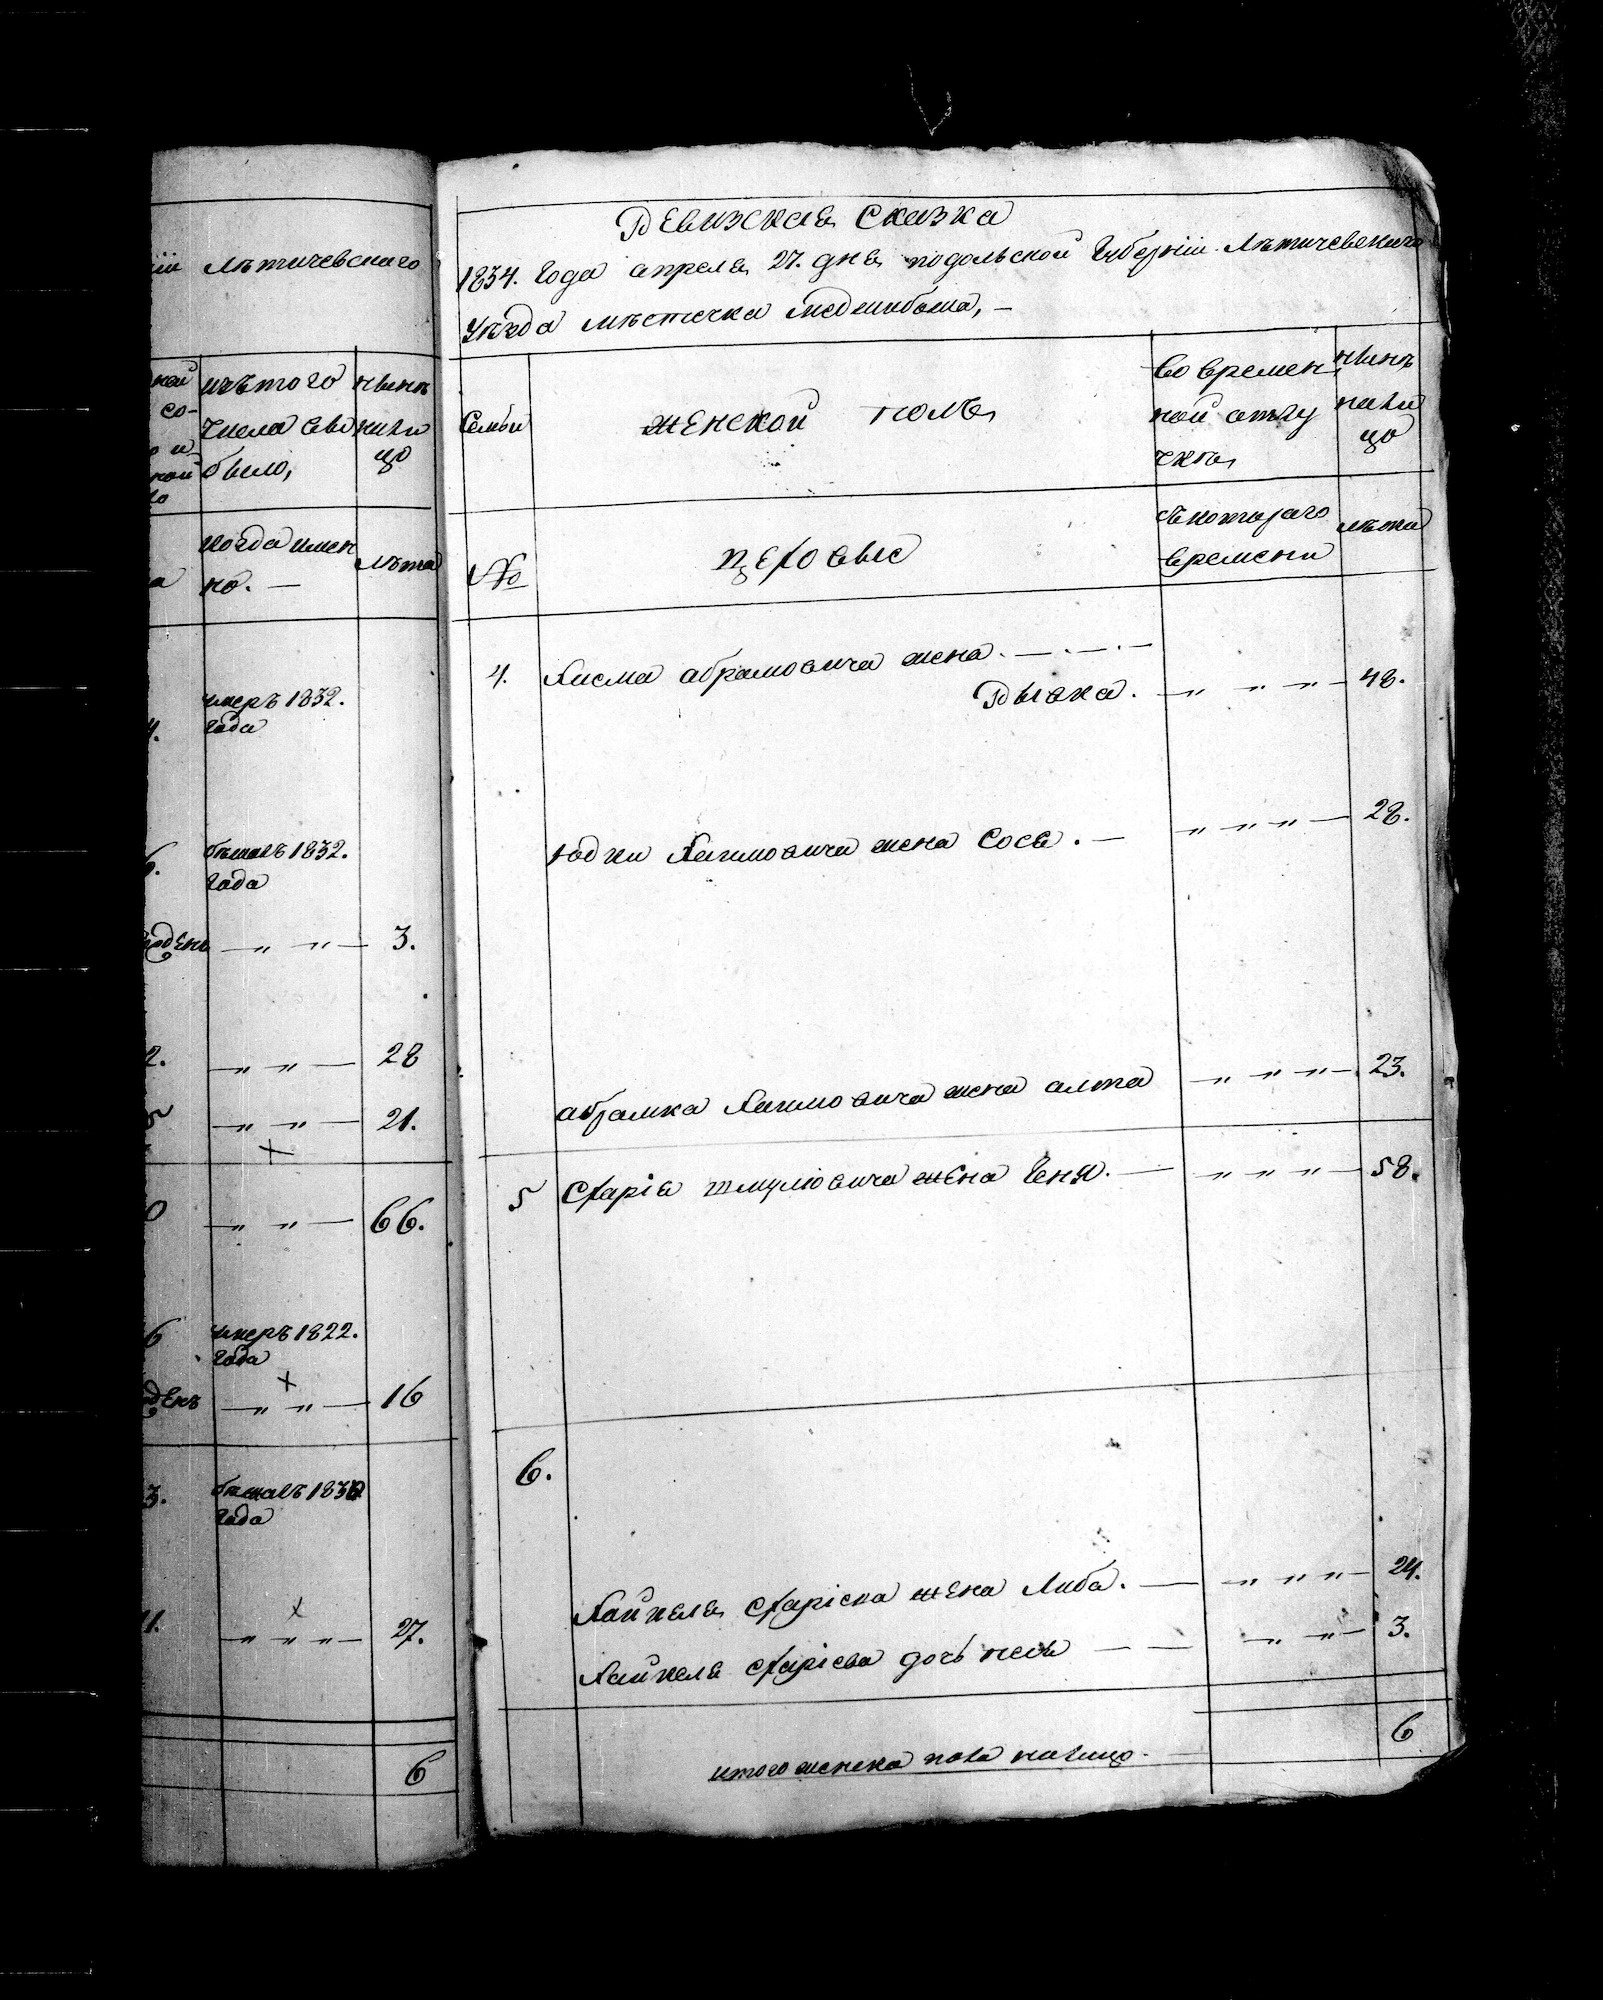 Лѣтичевскаго
изъ того
числа выбыло,
нынѣ
налицо
когда именно. —
лѣта
умеръ 1832.
года
бѣжалъ 1832.
года
— „ „ — 3.
— „ „ — 28
— „ „ — 21.
— „ „ — 66.
умеръ 1822.
года
— „ „ — 16
бѣжалъ 1830
года
— „ „ „ — 27.
6
Ревизская Сказка
1834. Года апреля 27. дня подольской Губерніи Лѣтичевскаго
Уѣзда мѣстечка Меджибожа, —
Семьи
женской полъ
во времен
ной отлу
чкѣ
нынѣ
нали
цо
№
Еврѣевъ
съ котораго
времени
лѣта
4. Хаима абрамовича жена. — . — . —
Рывка. — „ „ „ — 48.
Юдки Хаимовича жена Сося. — — „ „ „ — 28.
абрамка Хаимовича жена алта — „ „ „ — 23.
5 Схарія шмулювича жена Геня. — — „ „ „ — 58.
6.
Хайкеля Схаріева жена Либа. — — „ „ „ — 24.
Хайкеля Схаріева дочь песя — — — „ „ — 3.
итого женска пола налицо. 6